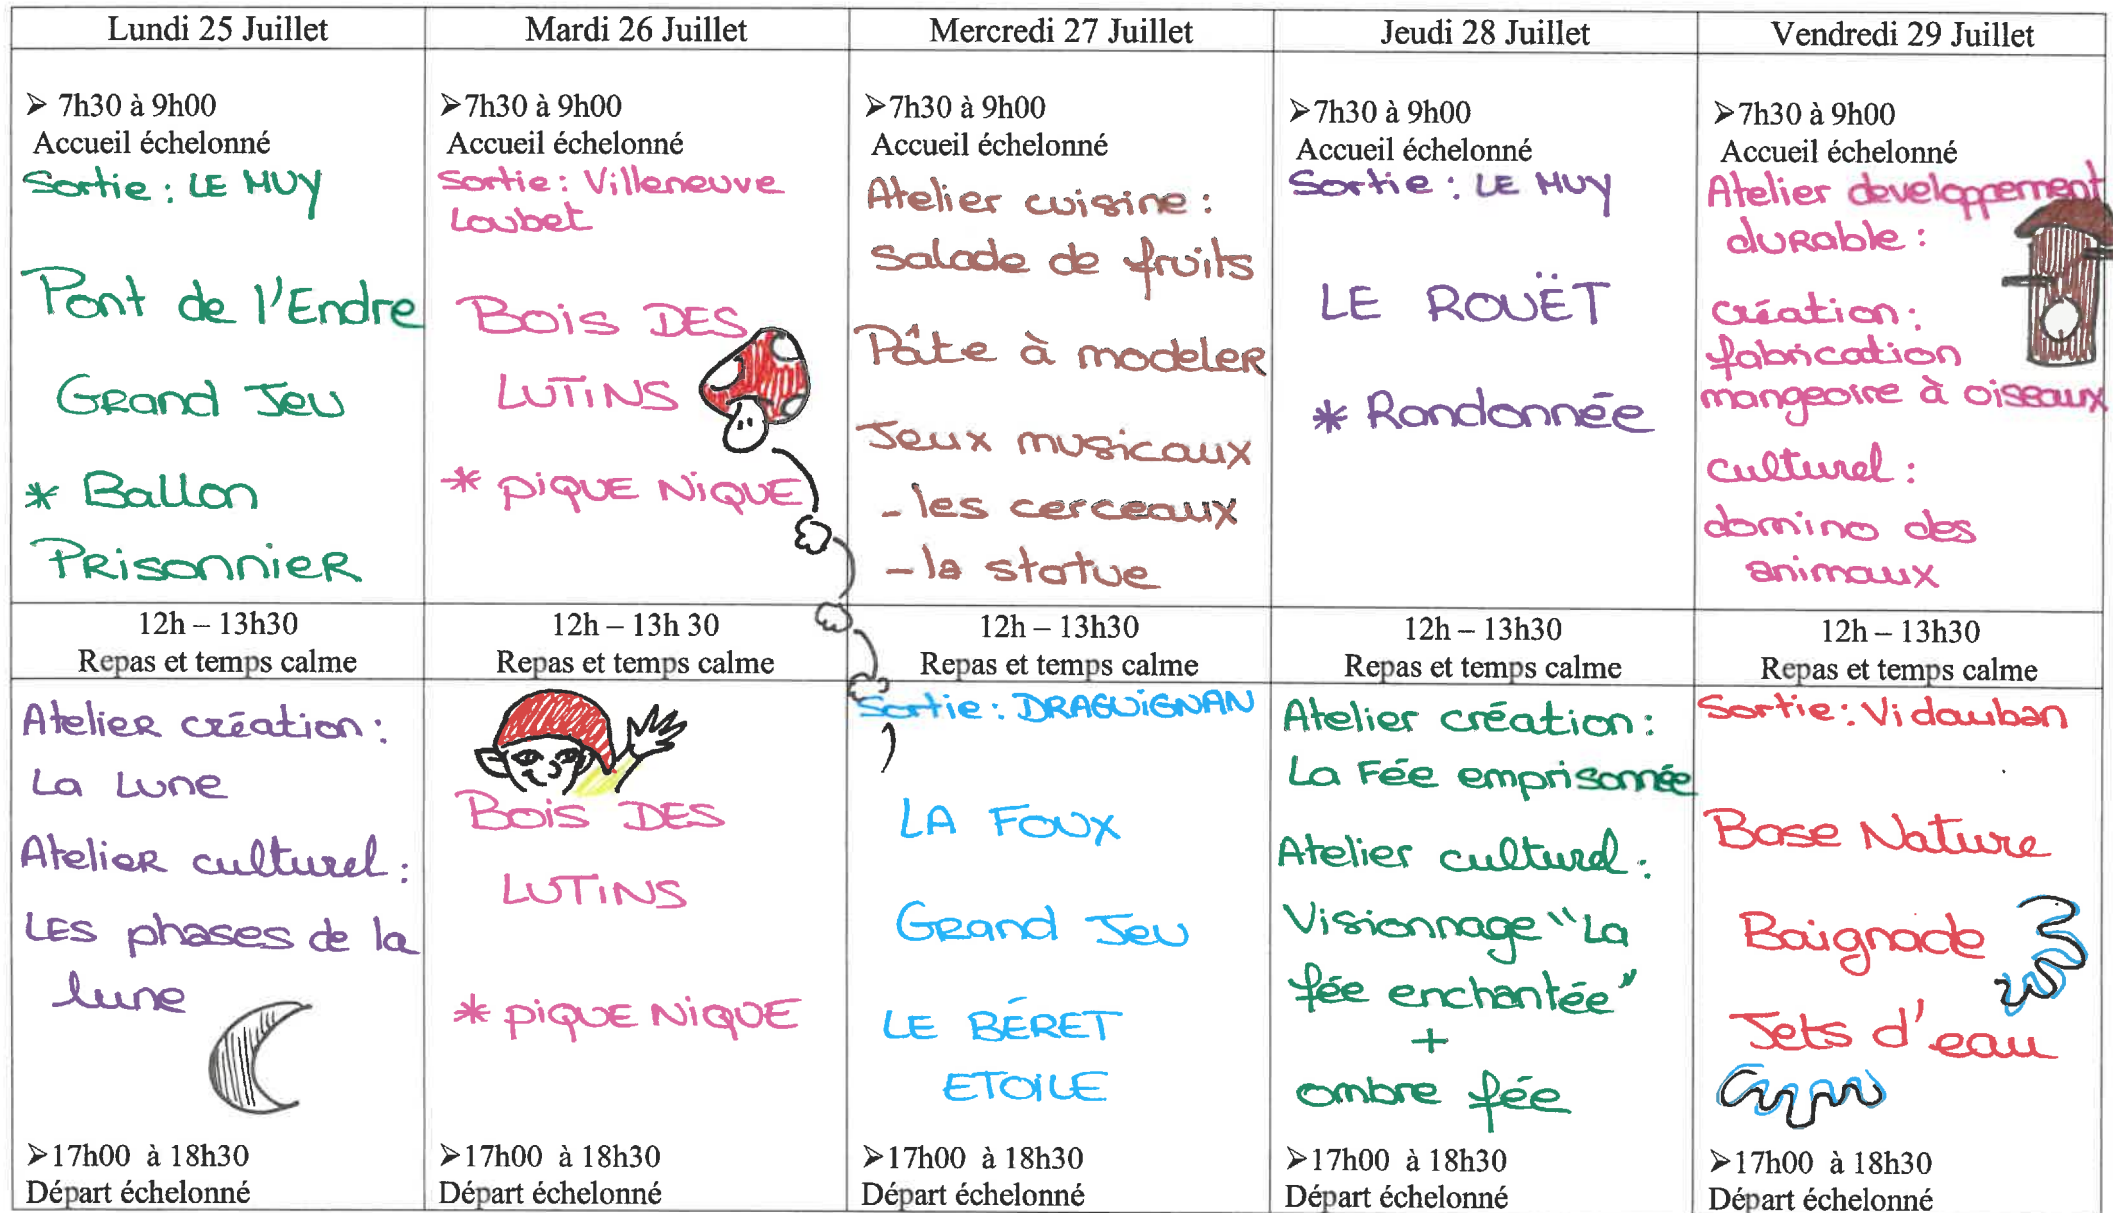 Lundi 25 Juillet
Mardi 26 Juillet
Mercredi 27 Juillet
Jeudi 28 Juillet
Vendredi 29 Juillet
➢ 7h30 à 9h00
Accueil échelonné
Sortie : LE MUY
Pont de l'Endre
GRand Jeu
* Ballon
PRisonnieR
➢7h30 à 9h00
Accueil échelonné
Sortie : Villeneuve
Loubet
Bois DES
LUTiNS
* piQUE NiQUE
➢7h30 à 9h00
Accueil échelonné
Atelier cuisine :
Salade de fruits
Pâte à modeleR
Jeux musicaux
- les cerceaux
- la statue
➢7h30 à 9h00
Accueil échelonné
Sortie : LE MUY
LE ROUËT
* Randonnée
➢7h30 à 9h00
Accueil échelonné
Atelier developpement
duRable :
création :
fabrication
mangeoire à oiseaux
culturel :
domino des
animaux
12h – 13h30
Repas et temps calme
12h – 13h 30
Repas et temps calme
12h – 13h30
Repas et temps calme
12h – 13h30
Repas et temps calme
12h – 13h30
Repas et temps calme
AtelieR création :
La Lune
AtelieR culturel :
LES phases de la
lune
➢17h00 à 18h30
Départ échelonné
Bois DES
LUTiNS
* piQUE NiQUE
➢17h00 à 18h30
Départ échelonné
Sortie : DRAGUiGNAN
LA FOUX
GRand Jeu
LE BÉRET
ETOiLE
➢17h00 à 18h30
Départ échelonné
Atelier création :
La Fée emprisonnée
Atelier culturel :
Visionnage "La
fée enchantée"
+
ombre fée
➢17h00 à 18h30
Départ échelonné
Sortie : Vidauban
Base Nature
Baignade
Jets d'eau
➢17h00 à 18h30
Départ échelonné